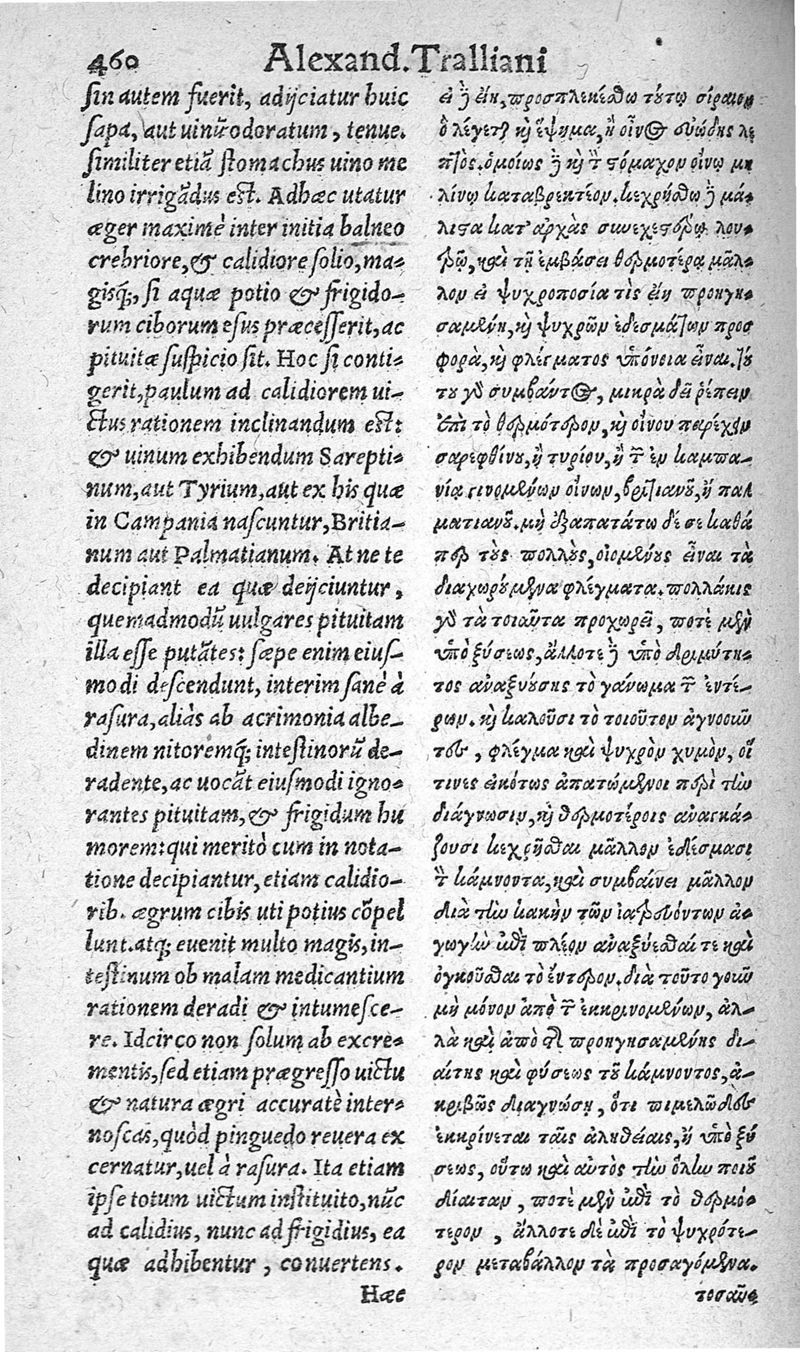 460 Alexand. Tralliani
sin autem fuerit, adijciatur huic
sapa, aut uinũ odoratum, tenue.
similiter etiã stomachus uino me
lino irrigãdus est. Adhæc utatur
æger maximè inter initia balneo
crebriore, & calidiore solio, ma-
gisq́;, si aquæ potio & frigido-
rum ciborum esus præcesserit, ac
pituitæ suspicio sit. Hoc si conti-
gerit, paulum ad calidiorem ui-
ctus rationem inclinandum est:
& uinum exhibendum Sarepti-
num, aut Tyrium, aut ex his quæ
in Campania nascuntur, Britia-
num aut Palmatianum. At ne te
decipiant ea quæ deijciuntur,
quemadmodũ uulgares pituitam
illa esse putãtes: sæpe enim eius-
modi descendunt, interim sanè à
rasura, aliàs ab acrimonia albe-
dinem nitoremq́; intestinorũ de-
radente, ac uocãt eiusmodi igno-
rantes pituitam, & frigidum hu
morem: qui meritò cum in nota-
tione decipiantur, etiam calidio-
rib. ægrum cibis uti potius cõpel
lunt. atq; euenit multo magis, in-
testinum ob malam medicantium
rationem deradi & intumesce-
re. Idcirco non solum ab excre-
mentis, sed etiam prægresso uictu
& natura ægri accuratè inter-
noscas, quòd pinguedo reuera ex
cernatur, uel à rasura. Ita etiam
ipse totum uictum instituito, nũc
ad calidius, nunc ad frigidius, ea
quæ adhibentur, conuertens.
Hæc
εἰ δὲ εἴη, προσπλεκέσθω τούτῳ σίραιον
ὃ λέγεται καὶ ἕψημα, ἢ οἶνος εὐώδης λε
πτός. ὁμοίως δὲ καὶ τὸν στόμαχον οἴνῳ μη
λίνῳ καταβρεκτέον. κεχρήσθω δὲ μά-
λιστα κατ' ἀρχὰς συνεχεστέρῳ λου-
τρῷ, καὶ τῇ ἐμβάσει θερμοτέρᾳ μᾶλ-
λον εἰ ψυχροποσία τὶς εἴη προηγη-
σαμένη, καὶ ψυχρῶν ἐδεσμάτων προσ
φορὰ, καὶ φλέγματος ὑπόνοια εἶναι. τού
του γὰρ συμβάντος, μικρὰ δεῖ ῥέπειν
ἐπὶ τὸ θερμότερον, καὶ οἴνου παρέχειν
σαρεφθίνου, ἢ τυρίου, ἢ τῶν ἐν καμπα-
νίᾳ γινομένων οἴνων, βριτιανοῦ, ἢ παλ
ματιανοῦ. μὴ ἐξαπατάτω δέ σε καθά
περ τοὺς πολλοὺς, οἰομένους εἶναι τὰ
διαχωρούμενα φλέγματα. πολλάκις
γὰρ τὰ τοιαῦτα προχωρεῖ, ποτὲ μὲν
ὑπὸ ξύσεως, ἄλλοτε δὲ ὑπὸ δριμύτη-
τος ἀναξυούσης τὸ γάνωμα τῶν ἐντέ-
ρων. καὶ καλοῦσι τὸ τοιοῦτον ἀγνοοῦν
τες, φλέγμα καὶ ψυχρὸν χυμὸν, οἵ
τινες εἰκότως ἀπατώμενοι περὶ τὴν
διάγνωσιν, καὶ θερμοτέροις ἀναγκά-
ζουσι κεχρῆσθαι μᾶλλον ἐδέσμασι
τὸν κάμνοντα, καὶ συμβαίνει μᾶλλον
διὰ τὴν κακὴν τῶν ἰατρευόντων ἀ-
γωγὴν ἐπὶ πλέον ἀναξύεσθαί τε καὶ
ὀγκοῦσθαι τὸ ἔντερον. διὰ τοῦτο γοῦν
μὴ μόνον ἀπὸ τῶν ἐκκρινομένων, ἀλ-
λὰ καὶ ἀπὸ τῆς προηγησαμένης δι-
αίτης καὶ φύσεως τοῦ κάμνοντος, ἀ-
κριβῶς διαγνώσῃ, ὅτι πιμελῶδες
ἐκκρίνεται ταῖς ἀληθείαις, ἢ ὑπὸ ξύ
σεως, οὕτω καὶ αὐτὸς τὴν ὅλην ποιοῦ
δίαιταν, ποτὲ μὲν ἐπὶ τὸ θερμό-
τερον, ἄλλοτε δὲ ἐπὶ τὸ ψυχρότε-
ρον μεταβάλλων τὰ προσαγόμενα.
τοσαῦ-